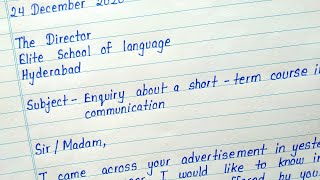 24 December 2020
The Director
Elite School of language
Hyderabad
Subject - Enquiry about a short - term course i
communication
Sir / Madam,
I came across your advertisement in yeste
I would like to know i
offered by you.